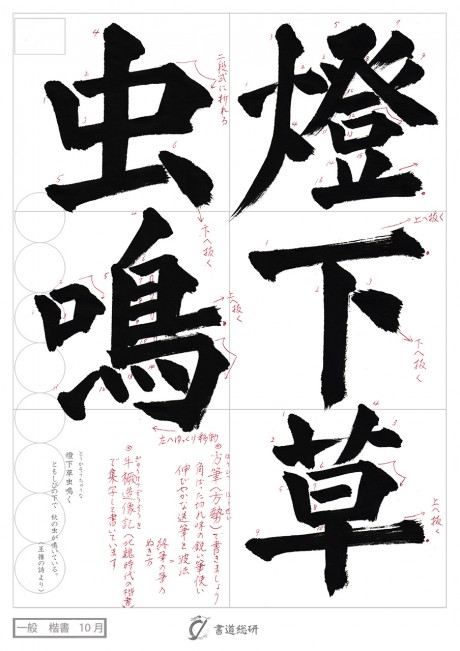 燈下草
虫鳴
二段式に折れる
下へ抜く
上へ抜く
上へ抜く
下へ抜く
上へ抜く
左へゆっくり移動
方筆(方勢)で書きましょう
角ばった切れ味の鋭い筆使い
伸びやかな送筆と波法
終筆の筆の
ぬき方
牛橛造像記(北魏時代の楷書)
で集字して書いています
とうかそうちゅうな
燈下草虫鳴く
ともしびの下で 秋の虫が鳴いている。
(王維の詩より)
一般 楷書 10月
書道総研